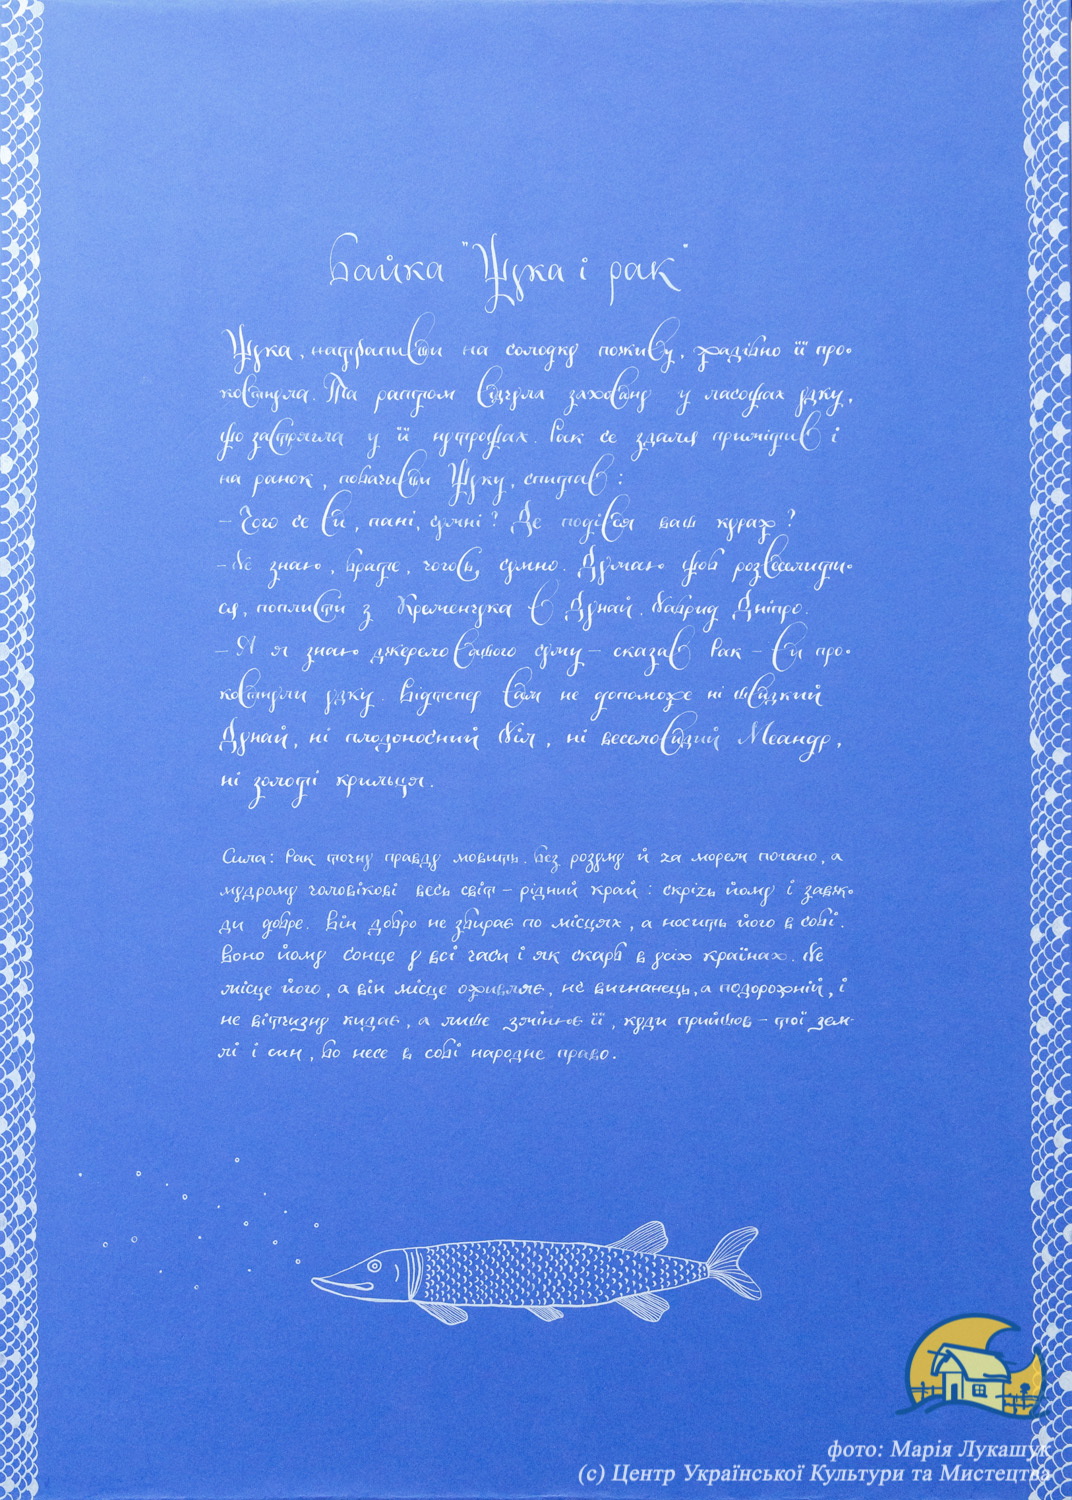 Байка "Щука і рак"
Щука, натрапивши на солодку поживу, жадібно її про-
ковтнула. Та раптом відчула заховану у ласощах удку,
що застрягла у її нутрощах. Рак се здаля примітив і
на ранок, побачивши Щуку, спитав:
– Чого се ви, пані, сумні? Де подівся ваш кураж?
– Не знаю, брате, чогось сумно. Думаю щоб розвеселити-
ся, поплисти з Кременчука в Дунай. Набрид Дніпро.
– А я знаю джерело вашого суму – сказав Рак – ви про-
ковтнули удку. Відтепер вам не допоможе ні швидкий
Дунай, ні плодоносний Ніл, ні веселовидий Меандр,
ні золоті крильця.
Сила: Рак точну правду мовить. Без розуму й за морем погано, а
мудрому чоловікові весь світ – рідний край: скрізь йому і завж-
ди добре. Він добро не збирає по місцях, а носить його в собі.
Воно йому сонце у всі часи і як скарб в усіх країнах. Не
місце його, а він місце оживляє, не вигнанець, а подорожній, і
не вітчизну кидає, а лише змінює її, куди прийшов – тої зем-
лі і син, бо несе в собі народне право.
фото: Марія Лукашук
(с) Центр Української Культури та Мистецтва